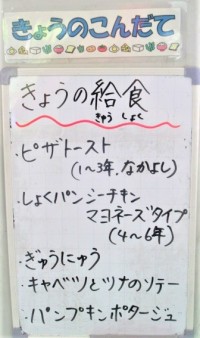 きょうのこんだて
きょうの給食
きゅう しょく
・ピザトースト
(1～3年,なかよし)
・しょくパンシーチキン
マヨネーズタイプ
(4～6年)
・ぎゅうにゅう
・キャベツとツナのソテー
・パンプキンポタージュ